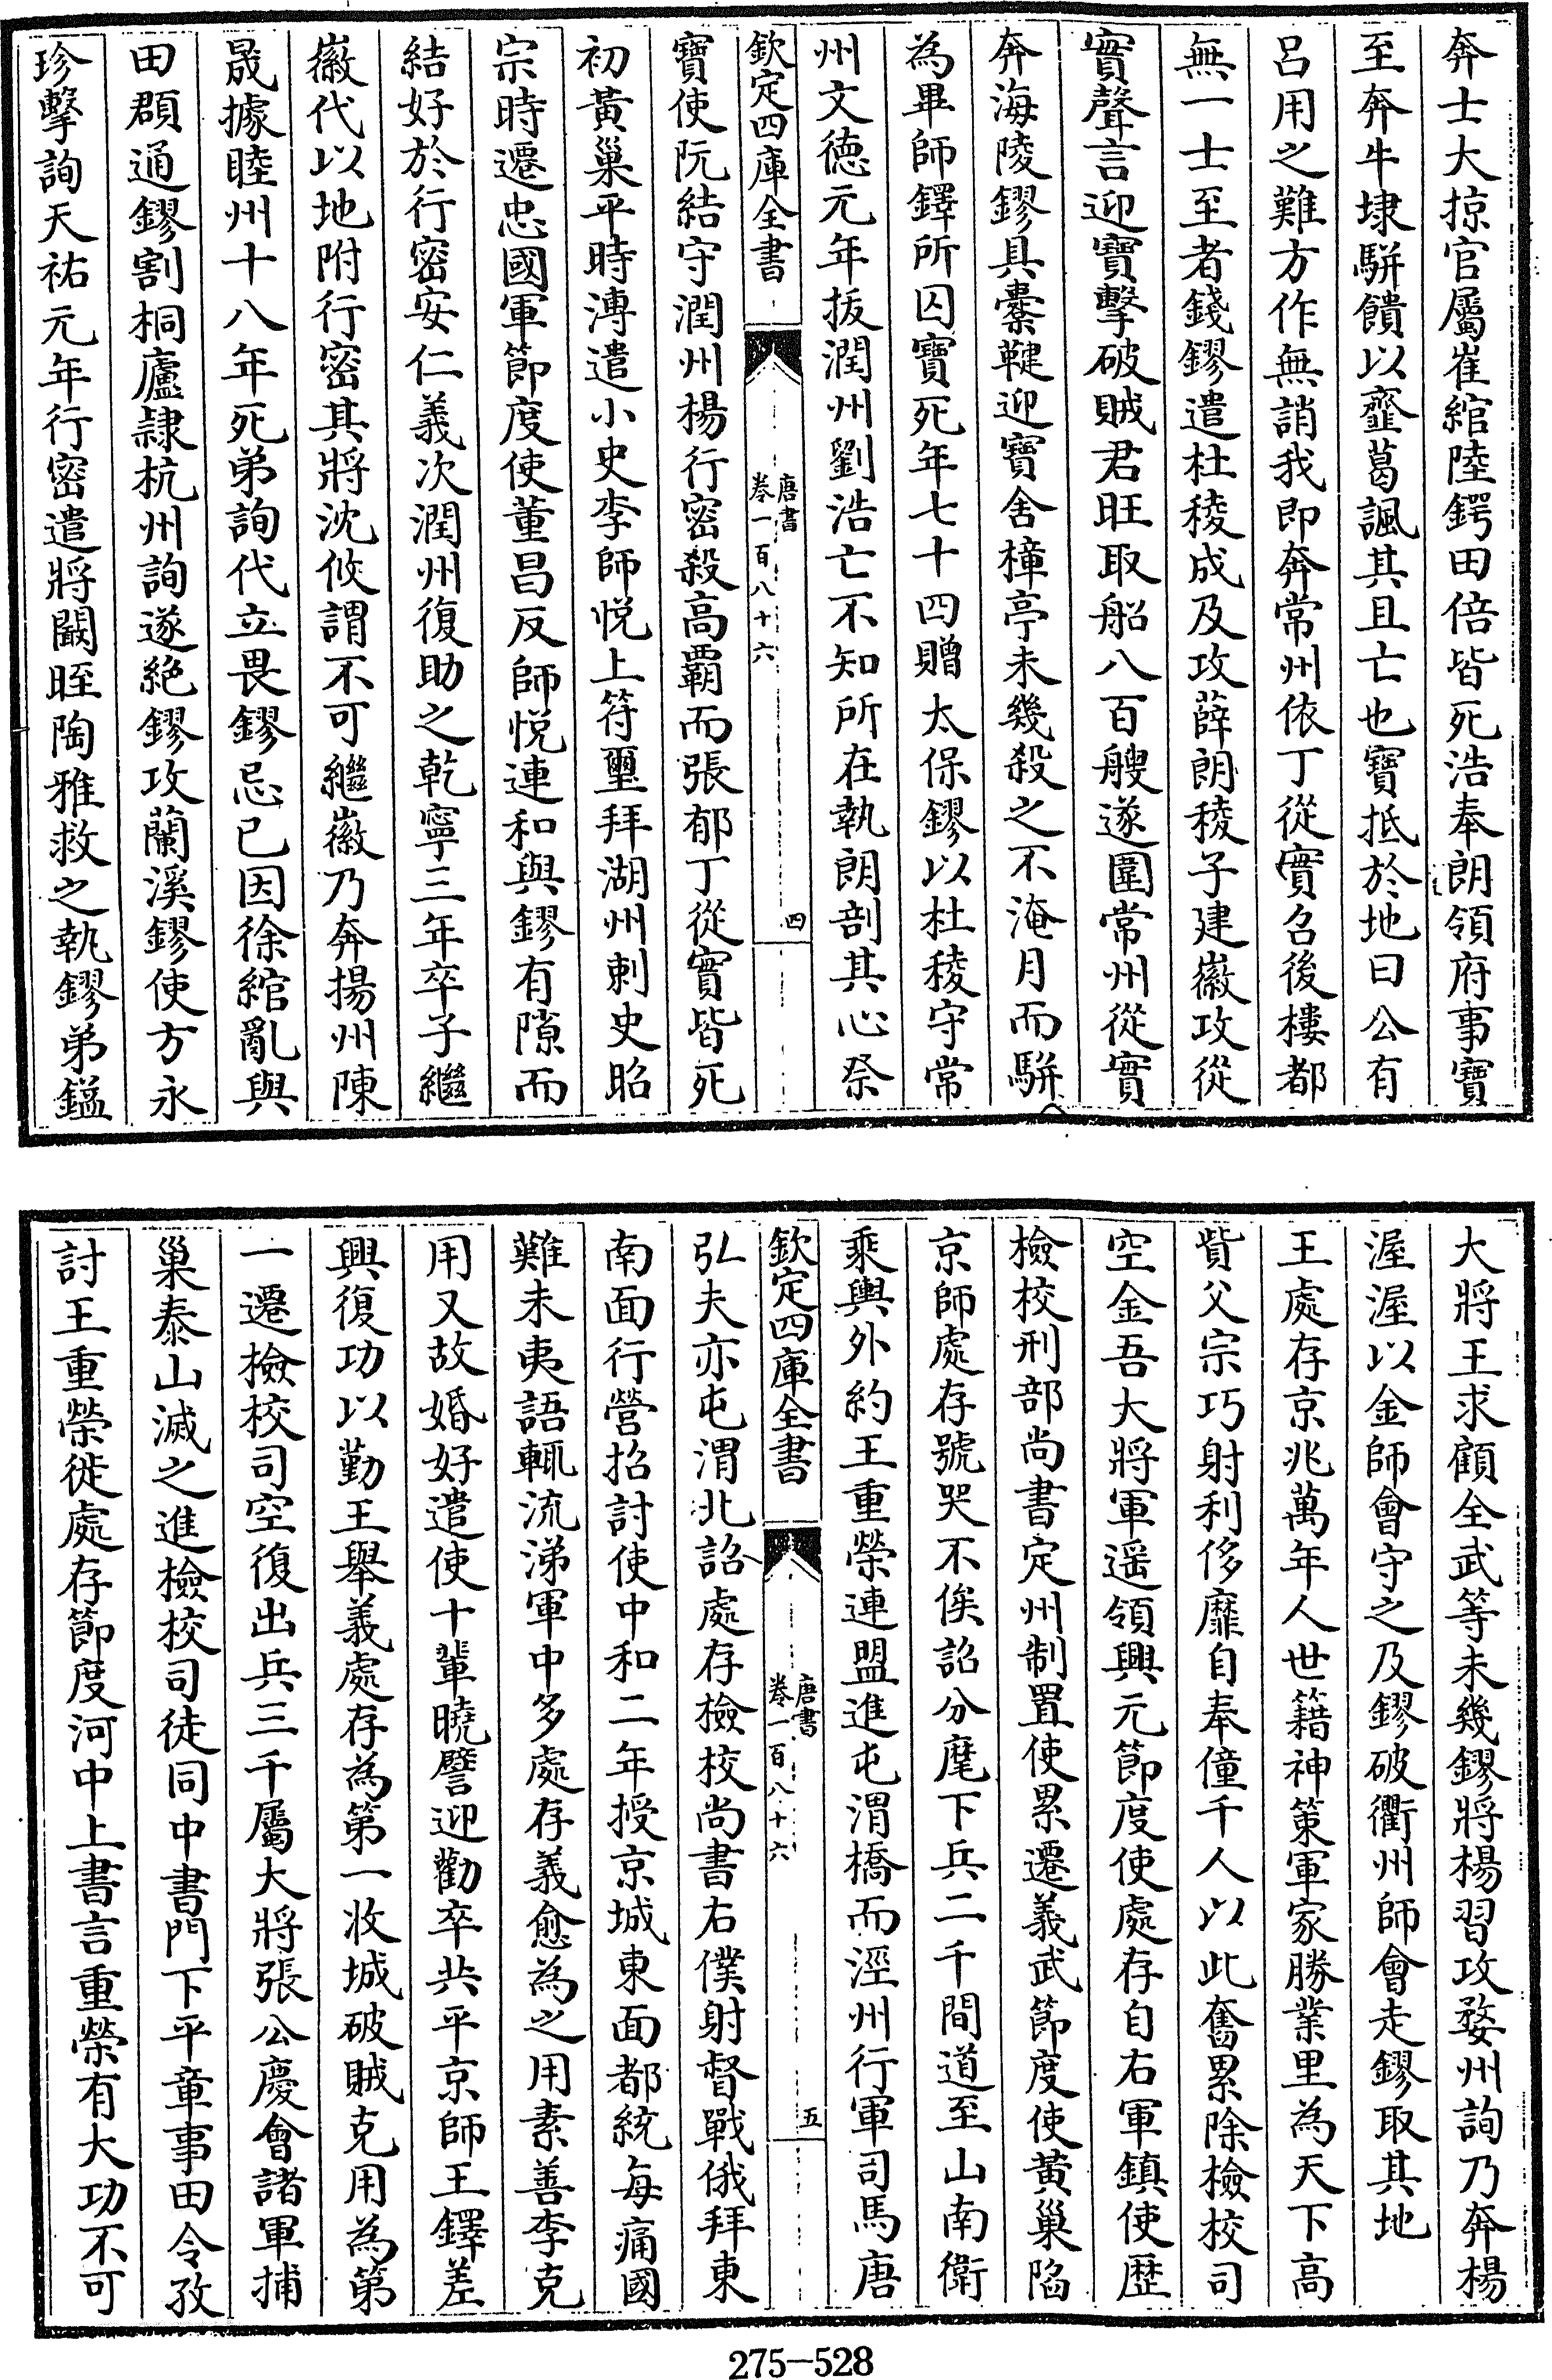 奔士大掠官屬崔綰陸鍔田倍皆死浩奉朗領府事寶
至奔牛埭駢饋以虀葛諷其且亡也寶抵於地曰公有
呂用之難方作無誚我即奔常州依丁從實召後樓都
無一士至者錢鏐遣杜稜成及攻薛朗稜子建徽攻從
實聲言迎寶擊破賊君旺取船八百艘遂圍常州從實
奔海陵鏐具櫜鞬迎寶舍樟亭未幾殺之不淹月而駢
為畢師鐸所囚寶死年七十四贈太保鏐以杜稜守常
州文德元年拔潤州劉浩亡不知所在執朗剖其心祭
欽定四庫全書
唐書
卷一百八十六
四
寶使阮結守潤州楊行密殺高霸而張郁丁從實皆死
初黃巢平時溥遣小史李師悅上符璽拜湖州刺史昭
宗時遷忠國軍節度使董昌反師悅連和與鏐有隙而
結好於行密安仁義次潤州復助之乾寧三年卒子繼
徽代以地附行密其將沈攸謂不可繼徽乃奔揚州陳
晟據睦州十八年死弟詢代立畏鏐忌已因徐綰亂與
田頵通鏐割桐廬隷杭州詢遂絶鏐攻蘭溪鏐使方永
珍擊詢天祐元年行密遣將闞晊陶雅救之執鏐弟鎰
大將王求顧全武等未幾鏐將楊習攻婺州詢乃奔楊
渥渥以金師會守之及鏐破衢州師會走鏐取其地
王處存京兆萬年人世籍神策軍家勝業里為天下高
貲父宗巧射利侈靡自奉僮千人以此奮累除檢校司
空金吾大將軍遥領興元節度使處存自右軍鎮使歷
檢校刑部尚書定州制置使累遷義武節度使黃巢陷
京師處存號哭不俟詔分麾下兵二千間道至山南衛
乘輿外約王重榮連盟進屯渭橋而涇州行軍司馬唐
欽定四庫全書
唐書
卷一百八十六
五
弘夫亦屯渭北詔處存檢校尚書右僕射督戰俄拜東
南面行營招討使中和二年授京城東面都統每痛國
難未夷語輒流涕軍中多處存義愈為之用素善李克
用又故婚好遣使十輩曉譬迎勸卒共平京師王鐸差
興復功以勤王舉義處存為第一收城破賊克用為第
一遷檢校司空復出兵三千屬大將張公慶會諸軍捕
巢泰山滅之進檢校司徒同中書門下平章事田令孜
討王重榮徙處存節度河中上書言重榮有大功不可
275-528